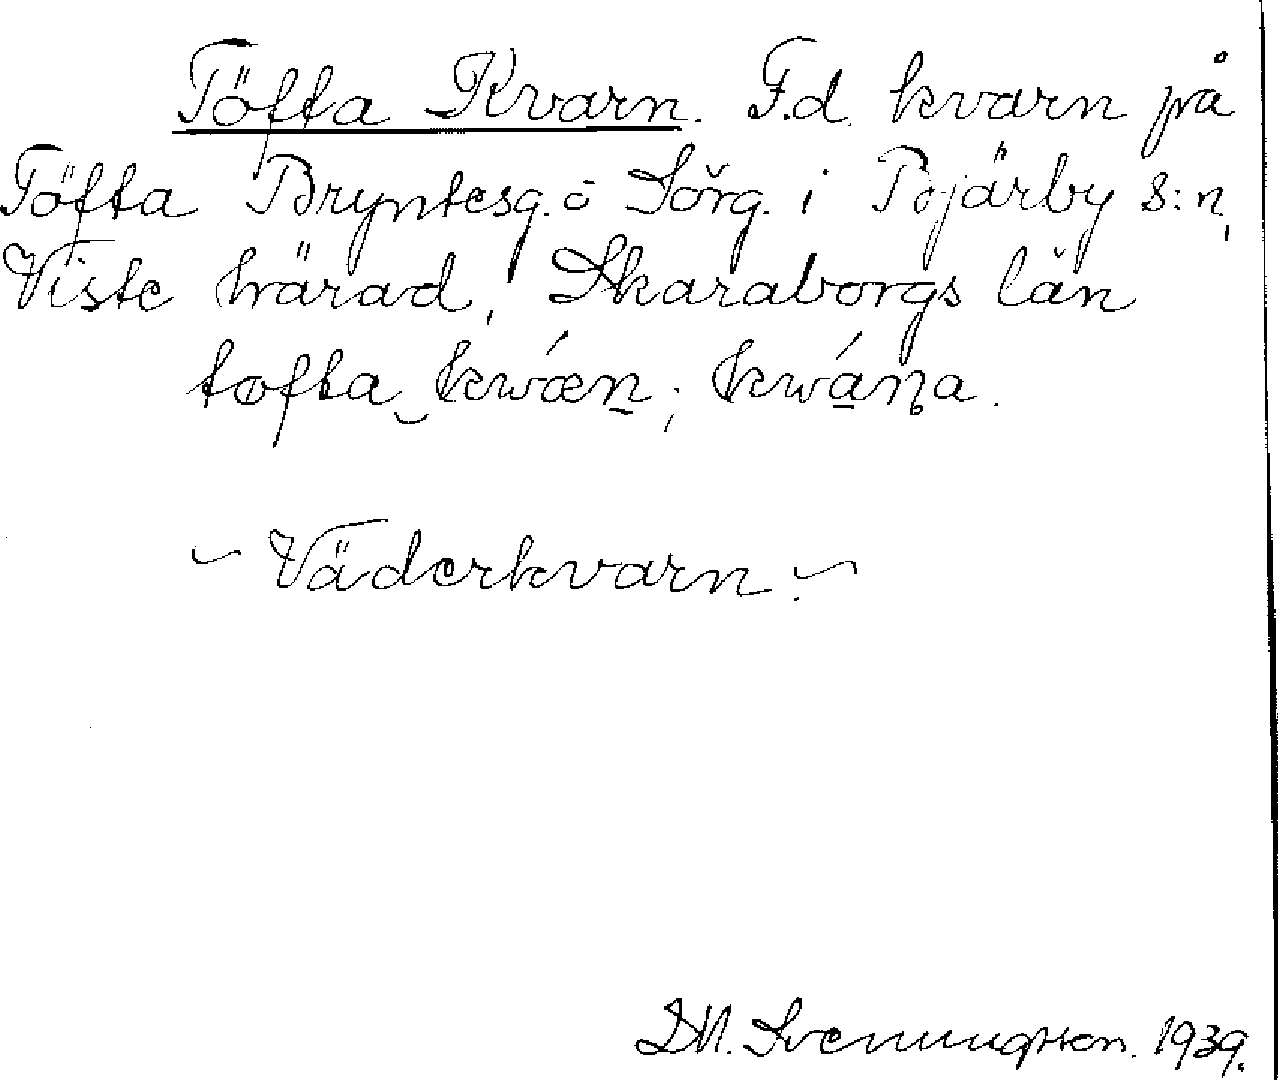 Töfta Kvarn. F.d. kvarn på
Töfta Bryntesg. o Sörg. i Bjärby s:n,
Viste härad, Skaraborgs län
tøfta kwǽn; kwána.
~ Väderkvarn. ~
D.M. Svenningsson. 1939.